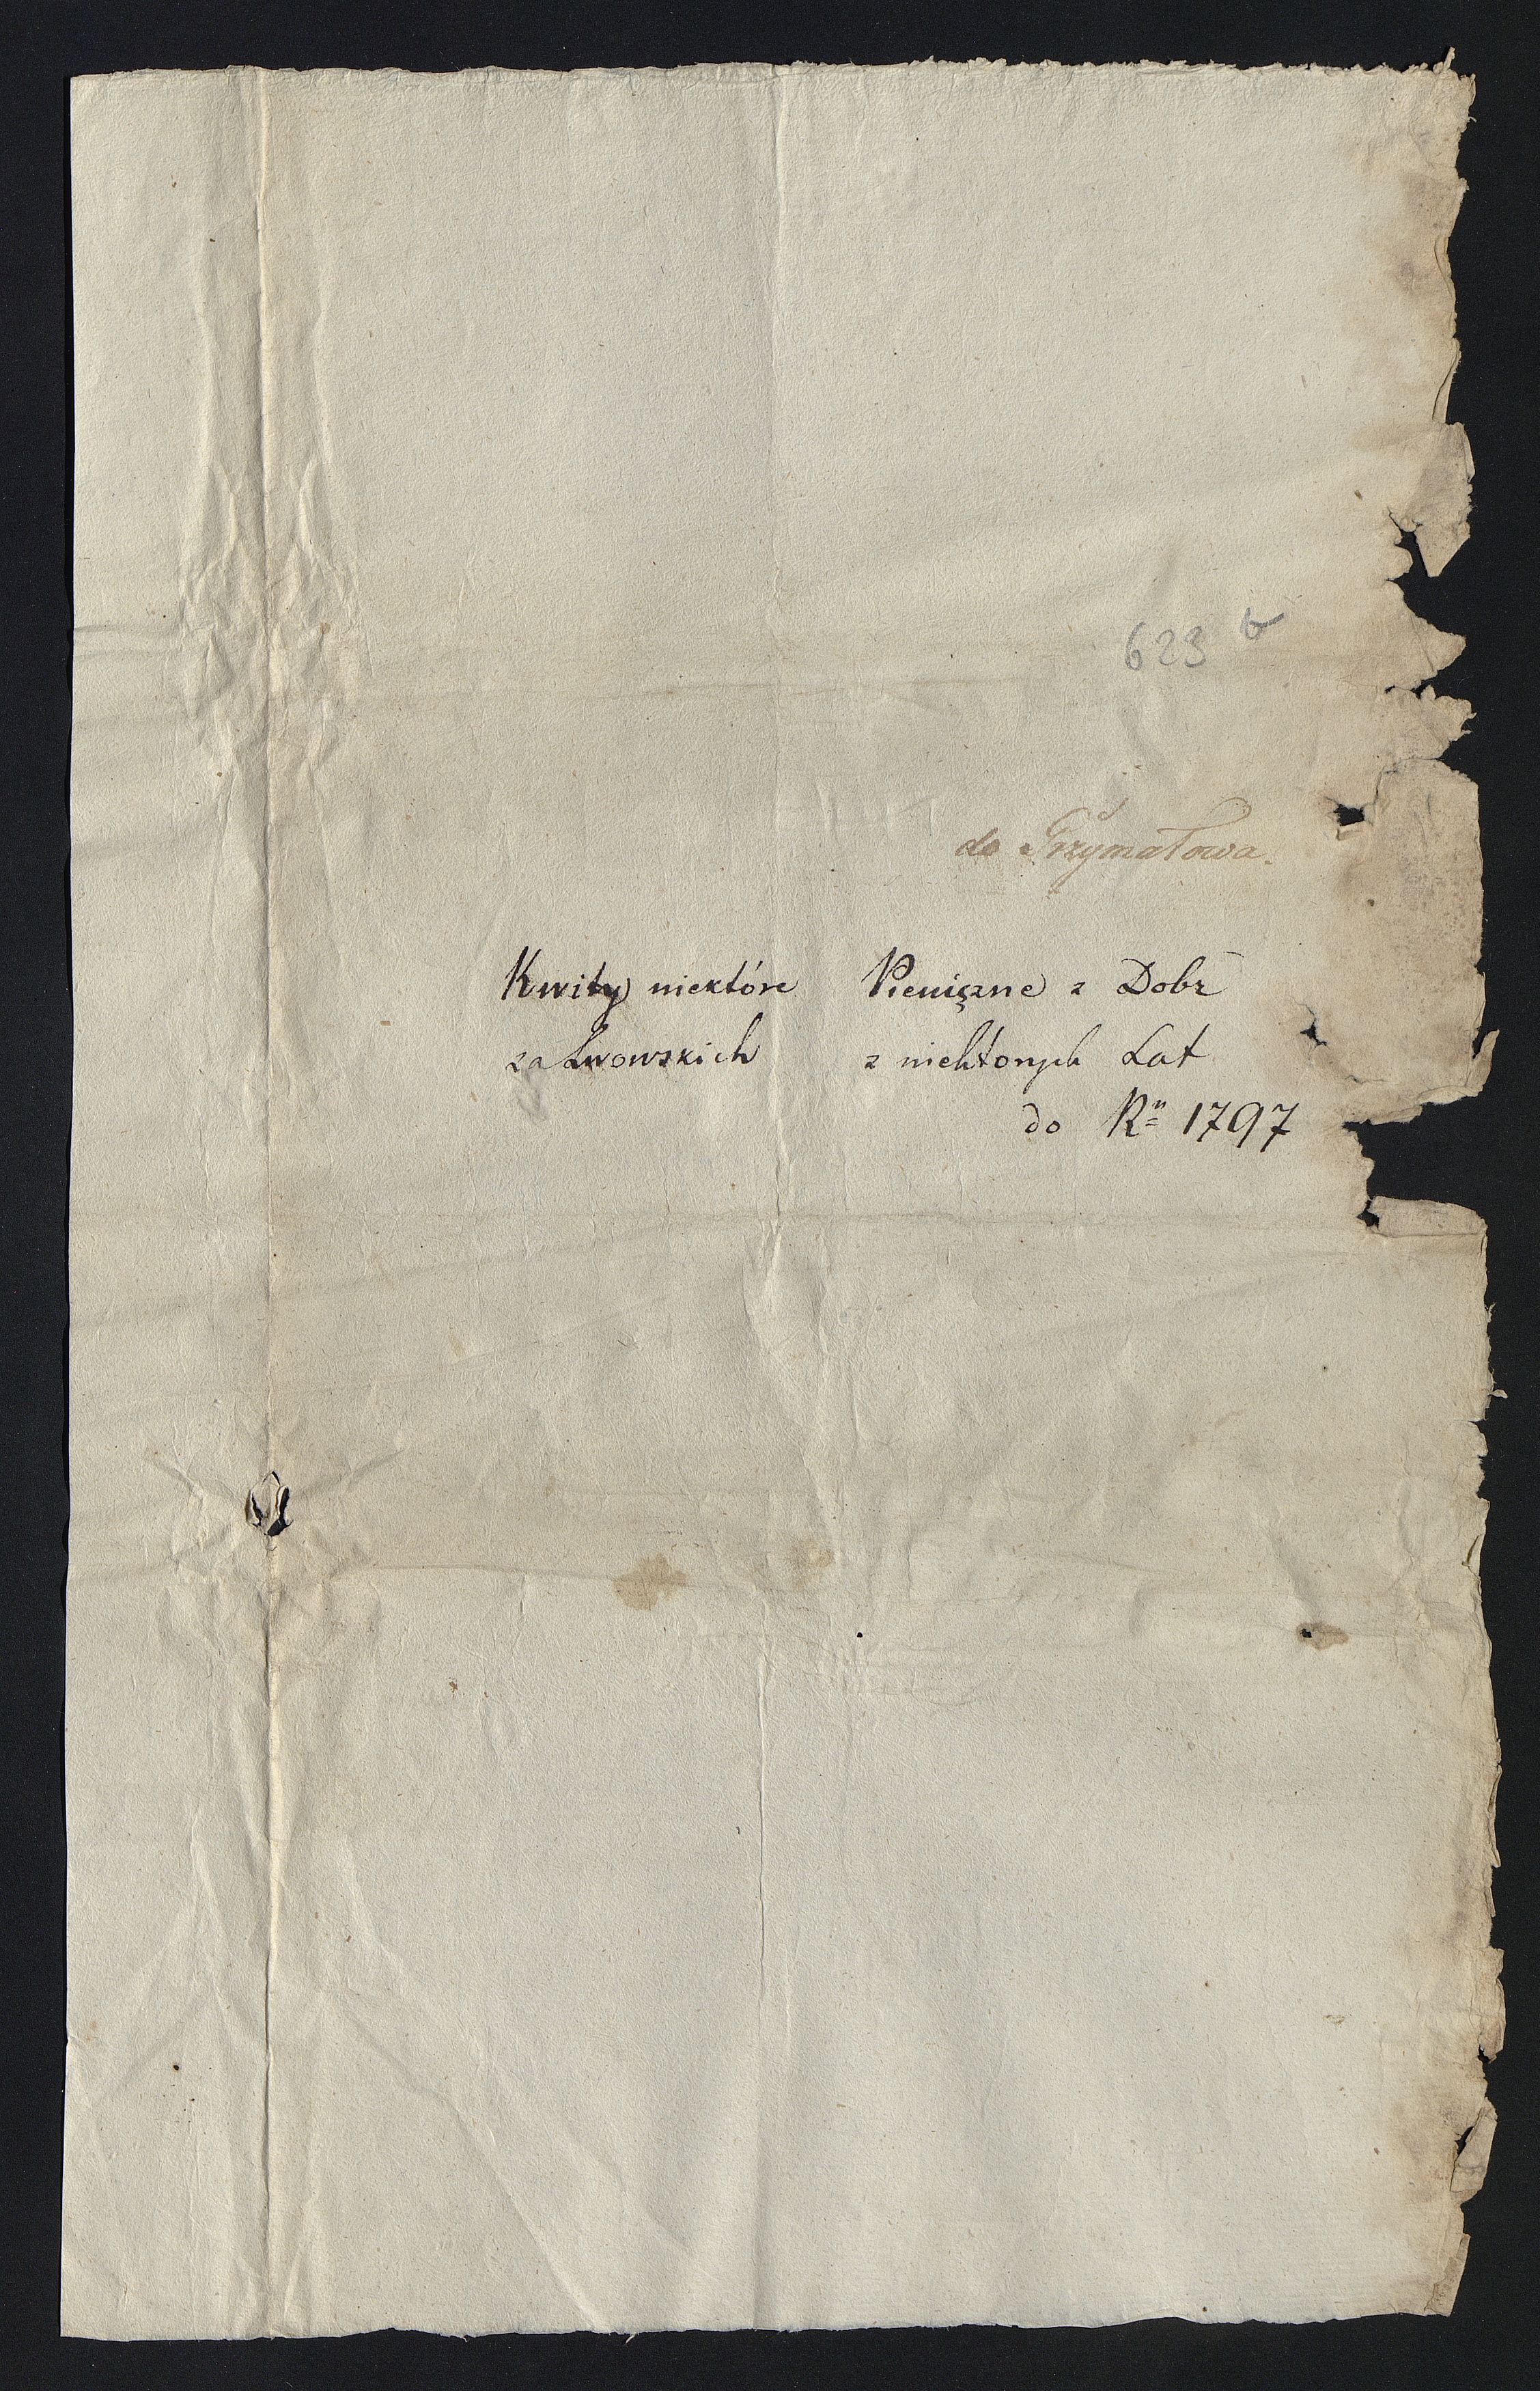 623 b
do Grzymałowa.
Kwity niektóre Pieniężne z Dobr
za Lwowskich z niektorych Lat
do Ru 1797